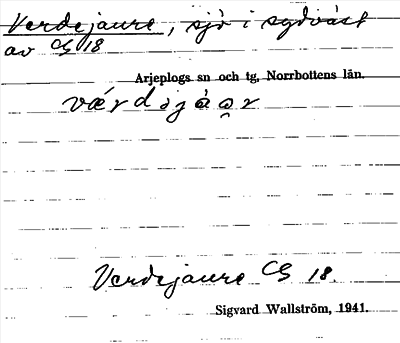 Verdejaure, sjö i sydväst
av CG 18
Arjeplogs sn och tg, Norrbottens län.
værdəjåǫr
Verdejaure CG 18.
Sigvard Wallström, 1941.